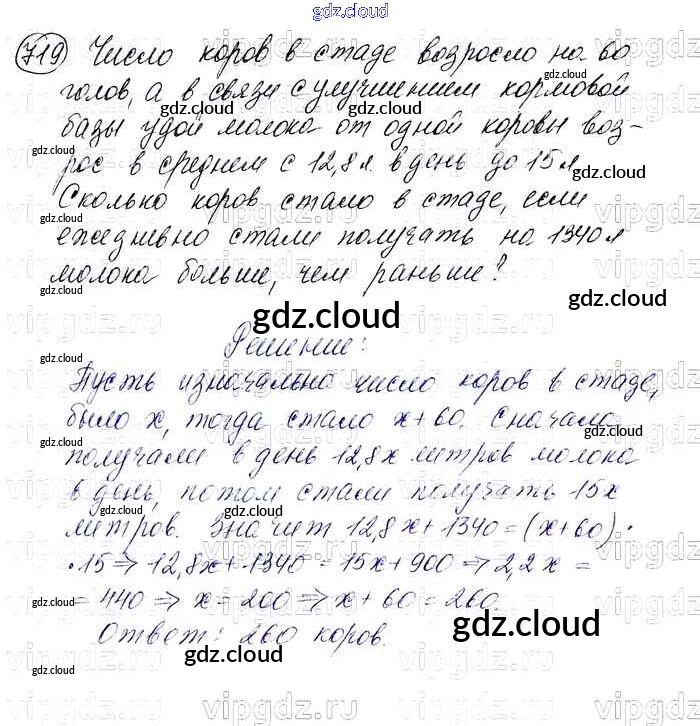 gdz.cloud
719 Число коров в стаде возросло на 60
голов, а в связи с улучшением кормовой
базы удой молока от одной коровы воз-
рос в среднем с 12,8 л в день до 15 л.
Сколько коров стало в стаде, если
ежедневно стали получать на 1340 л
молока больше, чем раньше?
gdz.cloud
Решение:
Пусть изначально число коров в стаде,
было x, тогда стало x+60. Сначала
получали в день 12,8x литров молока
в день, потом стали получать 15x
литров. Значит 12,8x+1340=(x+60)·
·15⇒12,8x+1340=15x+900⇒2,2x=
=440⇒x=200⇒x+60=260.
Ответ: 260 коров.
gdz.cloud